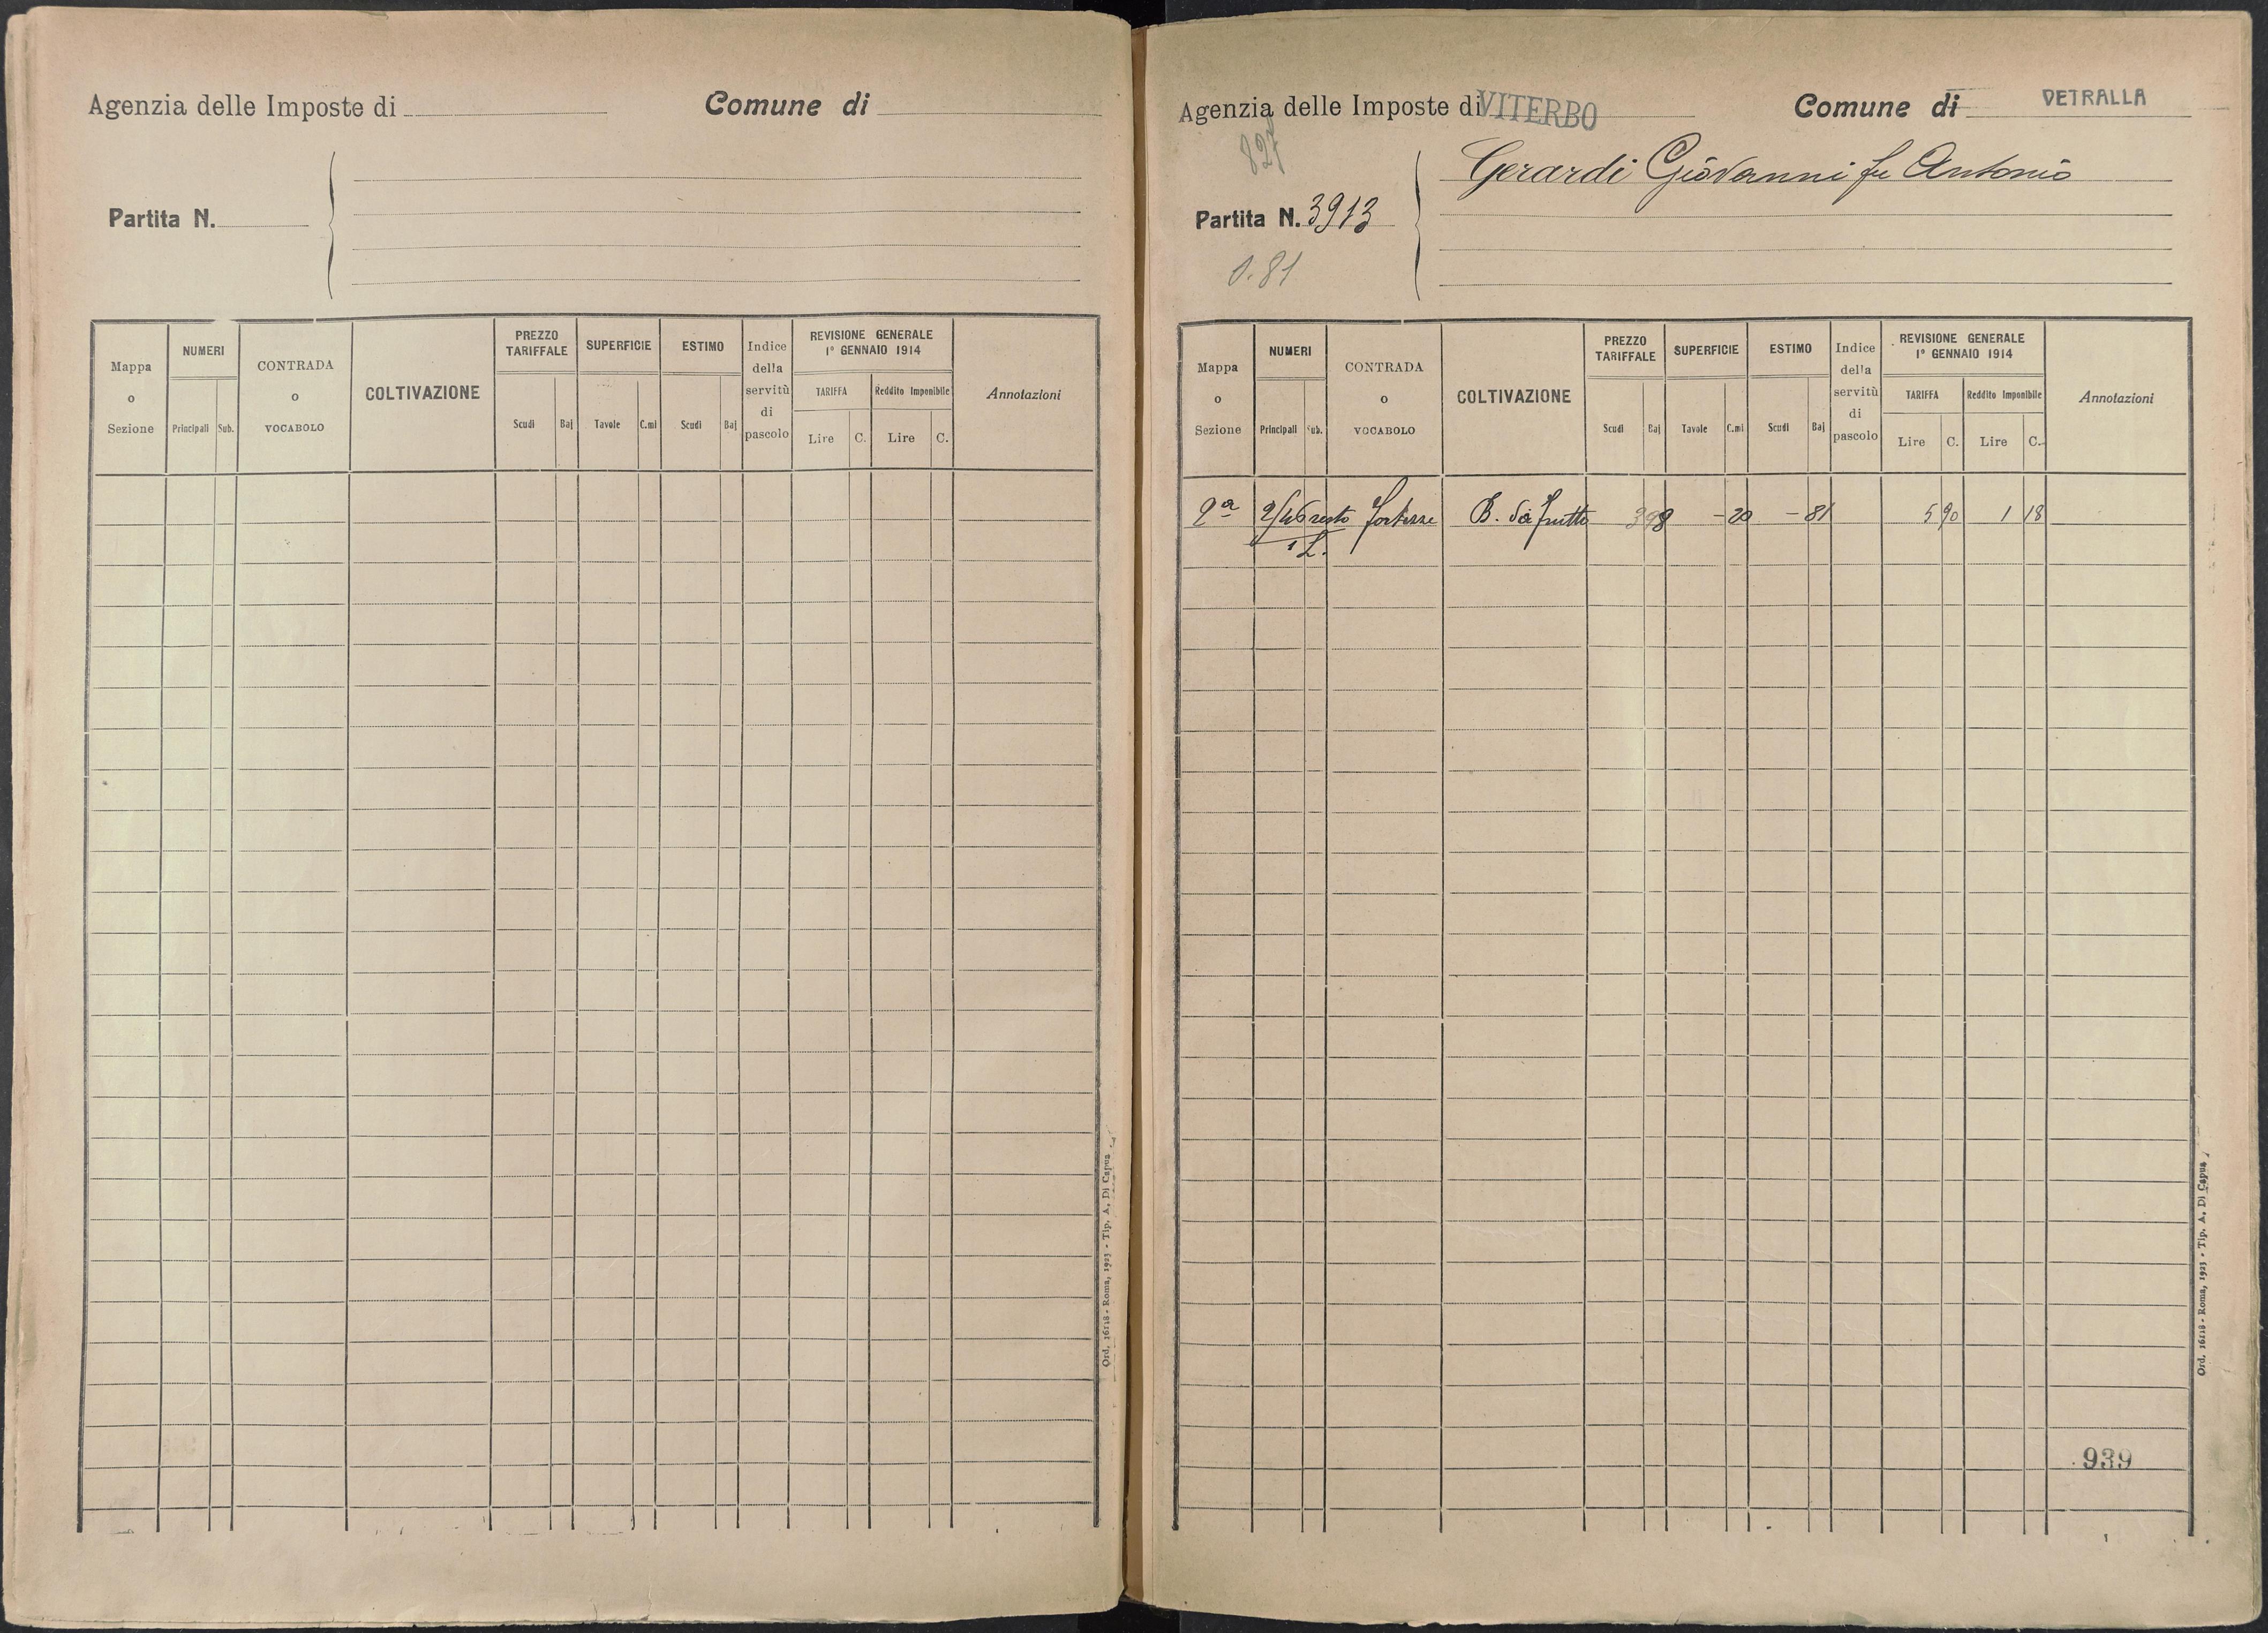 Agenzia delle Imposte di
Comune di
Partita N.
Mappa o Sezione
NUMERI
Principali
Sub.
CONTRADA o VOCABOLO
COLTIVAZIONE
PREZZO TARIFFALE
Scudi
Baj
SUPERFICIE
Tavole
C.mi
ESTIMO
Scudi
Baj
Indice della servitù di pascolo
REVISIONE GENERALE
1° GENNAIO 1914
TARIFFA
Lire
C.
Reddito Imponibile
Lire
C.
Annotazioni
Ord. 16118 - Roma, 1923 - Tip. A. Di Capua
Agenzia delle Imposte di VITERBO
Comune di VETRALLA
827
Gerardi Giovanni fu Antonio
Partita N. 3913
0.81
Mappa o Sezione
NUMERI
Principali
Sub.
CONTRADA o VOCABOLO
COLTIVAZIONE
PREZZO TARIFFALE
Scudi
Baj
SUPERFICIE
Tavole
C.mi
ESTIMO
Scudi
Baj
Indice della servitù di pascolo
REVISIONE GENERALE
1° GENNAIO 1914
TARIFFA
Lire
C.
Reddito Imponibile
Lire
C.
Annotazioni
2ª resto B. da frutto 3 98 - 20 - 81 5 90 1 18
939
Ord. 16118 - Roma, 1923 - Tip. A. Di Capua